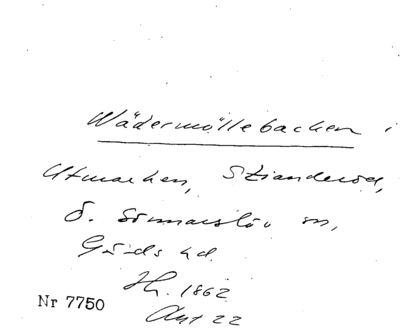 Wädermöllebacken i
Utmarken, Skianderöd,
Ö. Sönnarslöv sn,
Gärds hd.
Hr. 1862
Akt 22
Nr 7750